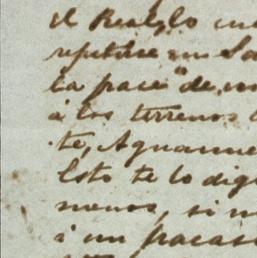 el Realzlo
repetirse un Sa
la pace" de
à los terrenos
te, Aguanue
Esto te lo dig
menos, si m
à un fracaso